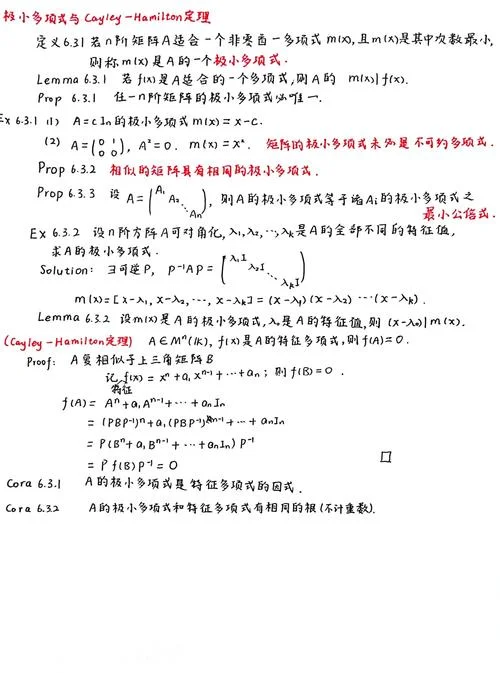 极小多项式与 Cayley-Hamilton定理
定义6.31 若n阶矩阵A适合一个非零首一多项式 m(x), 且m(x)是其中次数最小,
则称 m(x) 是 A 的一个极小多项式.
Lemma 6.3.1 若 f(x) 是 A 适合的一个多项式, 则 A 的 m(x) | f(x).
Prop 6.3.1 任一n阶矩阵的极小多项式必唯一.
Ex 6.3.1 (1) A = cIn 的极小多项式 m(x) = x-c.
(2) A = (0 1
0 0), A² = 0. m(x) = x². 矩阵的极小多项式未必是不可约多项式.
Prop 6.3.2 相似的矩阵具有相同的极小多项式.
Prop 6.3.3 设 A = (A₁
A₂
⋱
An), 则A的极小多项式等于诸Ai的极小多项式之
最小公倍式.
Ex 6.3.2 设n阶方阵A可对角化, λ₁, λ₂, ⋯, λk是A的全部不同的特征值,
求A的极小多项式.
Solution: ∃可逆P, P⁻¹AP = (λ₁I
λ₂I
⋱
λkI)
m(x) = [x-λ₁, x-λ₂, ⋯, x-λk] = (x-λ₁)(x-λ₂)⋯(x-λk).
Lemma 6.3.2 设m(x)是A的极小多项式, λ₀是A的特征值, 则 (x-λ₀) | m(x).
(Cayley-Hamilton定理) A∈Mⁿ(K), f(x)是A的特征多项式, 则f(A)=0.
Proof: A复相似于上三角矩阵B
记 f(x) = xⁿ + a₁xⁿ⁻¹ + ⋯ + an; 则 f(B) = 0.
特征
f(A) = Aⁿ + a₁Aⁿ⁻¹ + ⋯ + anIn
= (PBP⁻¹)ⁿ + a₁(PBP⁻¹)ⁿ⁻¹ + ⋯ + anIn
= P(Bⁿ + a₁Bⁿ⁻¹ + ⋯ + anIn)P⁻¹
= P f(B) P⁻¹ = 0 □
Cora 6.3.1 A的极小多项式是特征多项式的因式.
Cora 6.3.2 A的极小多项式和特征多项式有相同的根(不计重数).